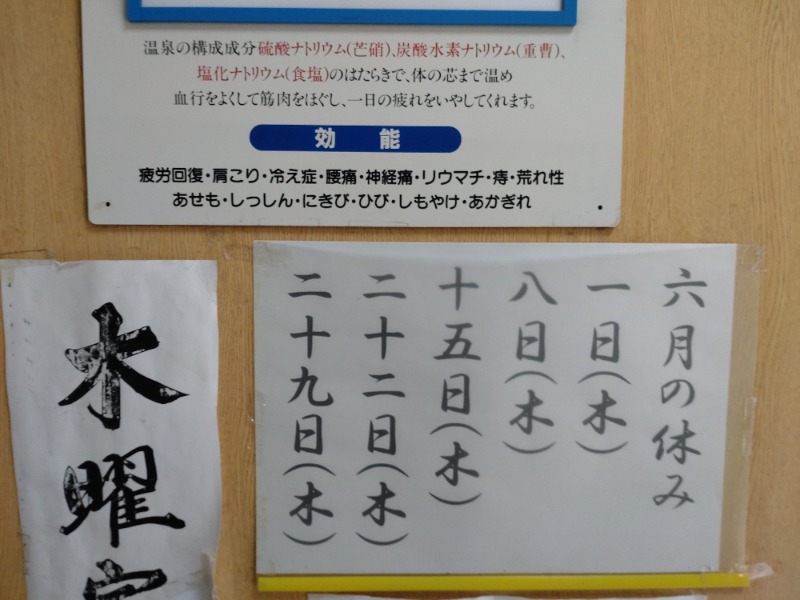 温泉の構成成分硫酸ナトリウム(芒硝)、炭酸水素ナトリウム(重曹)、
塩化ナトリウム(食塩)のはたらきで、体の芯まで温め
血行をよくして筋肉をほぐし、一日の疲れをいやしてくれます。
効能
疲労回復・肩こり・冷え症・腰痛・神経痛・リウマチ・痔・荒れ性
あせも・しっしん・にきび・ひび・しもやけ・あかぎれ
六月の休み
一日(木)
八日(木)
十五日(木)
二十二日(木)
二十九日(木)
木曜定